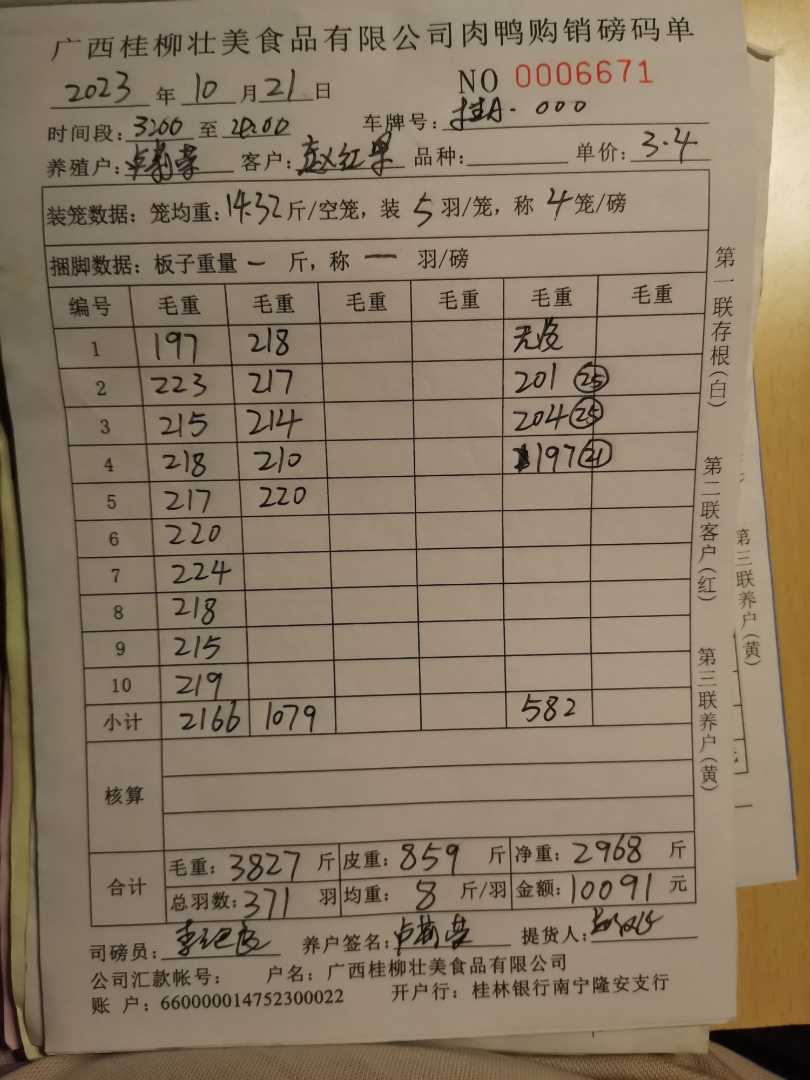 广西桂柳壮美食品有限公司肉鸭购销磅码单
2023年10月21日 NO 0006671
时间段:3200至2000 车牌号:桂A·000
养殖户: 客户:赵红果 品种: 单价:3.4
装笼数据:笼均重:14.32斤/空笼,装5羽/笼,称4笼/磅
捆脚数据:板子重量一斤,称一羽/磅
编号 毛重 毛重 毛重 毛重 毛重 毛重
1 197 218 无皮
2 223 217 201 25
3 215 214 204 25
4 218 210 197 21
5 217 220
6 220
7 224
8 218
9 215
10 219
小计 2166 1079 582
核算
合计 毛重:3827斤 皮重:859斤 净重:2968斤
总羽数:371羽 均重:8斤/羽 金额:10091元
司磅员: 养户签名: 提货人:
公司汇款帐号: 户名:广西桂柳壮美食品有限公司
账 户:660000014752300022 开户行:桂林银行南宁隆安支行
第一联存根(白)
第二联客户(红)
第三联养户(黄)
第三联养户(黄)